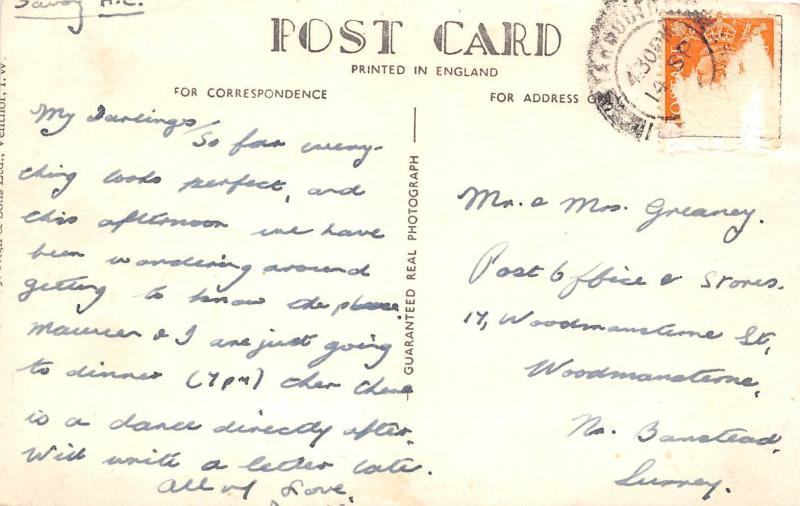 Savoy H.C.
POST CARD
PRINTED IN ENGLAND
FOR CORRESPONDENCE
FOR ADDRESS
My Darlings
So far every-
thing looks perfect, and
this afternoon we have
been wondering around
getting to know the place.
Maurice & I are just going
to dinner (7pm) then there
is a dance directly after.
Will write a letter late.
All my Love.
GUARANTEED REAL PHOTOGRAPH
& Sons Ltd., Ventnor, I.W.
4 30 PM
14 SP
Mr. & Mrs. Greaney.
Post Office & Stores.
17, Woodmansterne St,
Woodmansterne,
Nr. Banstead,
Surrey.